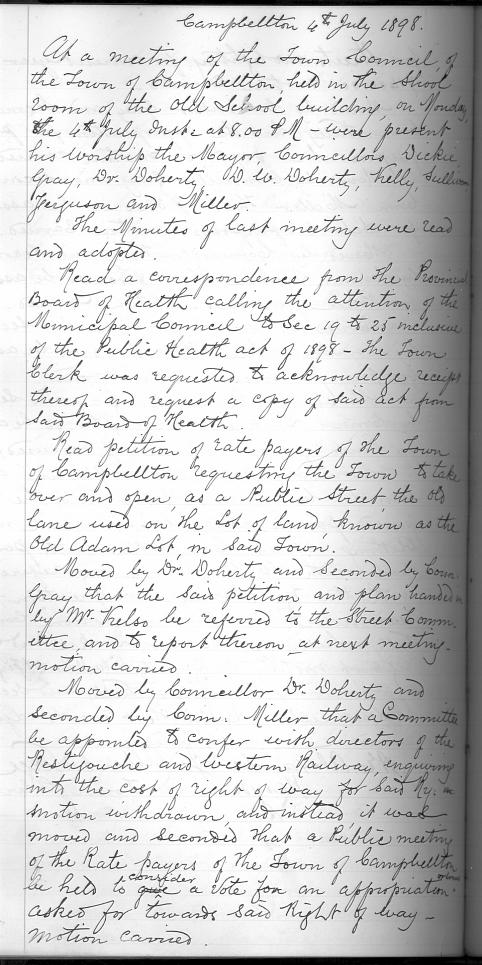 Campbellton 4th July 1898.
At a meeting of the Town Council, of
the Town of Campbellton held in the Shool
room of the Old School building, on Monday,
the 4th July Inst: at 8.00 PM - were present
his worship the Mayor, Councillors, Dickie
Gray, Dr. Doherty, D. W. Doherty, Kelly, Sullivan
Ferguson and Miller.
The Minutes of last meeting were read
and adopted.
Read a correspondence from the Provincial
Board of Health calling the attention of the
Municipal Council to Sec 19 to 25 inclusive
of the Public Health act of 1898 - the Town
Clerk was requested to acknowledge receipt
thereof and request a copy of said act from
said Board of Health.
Read petition of rate payers of the Town
of Campbellton requesting the Town to take
over and open, as a Public Street, the old
lane used on the Lot of land, known as the
Old Adam Lot, in said Town.
Moved by Dr. Doherty and seconded by Coun.
Gray that the said petition and plan handed in
by Mr. Kelso be referred to the Street Comm-
ittee, and to report thereon, at next meeting-
motion carried.
Moved by Councillor Dr. Doherty and
seconded by Coun: Miller that a Committee
be appointed to confer with directors of the
Restigouche and Western Railway, enquiring
into the cost of right of way for said Ry: -
motion withdrawn, and instead it was
moved and seconded that a Public meeting
of the Rate payers of the Town of Campbellton
be held to consider a vote for an appropriation
asked for towards said Right of way -
motion carried.